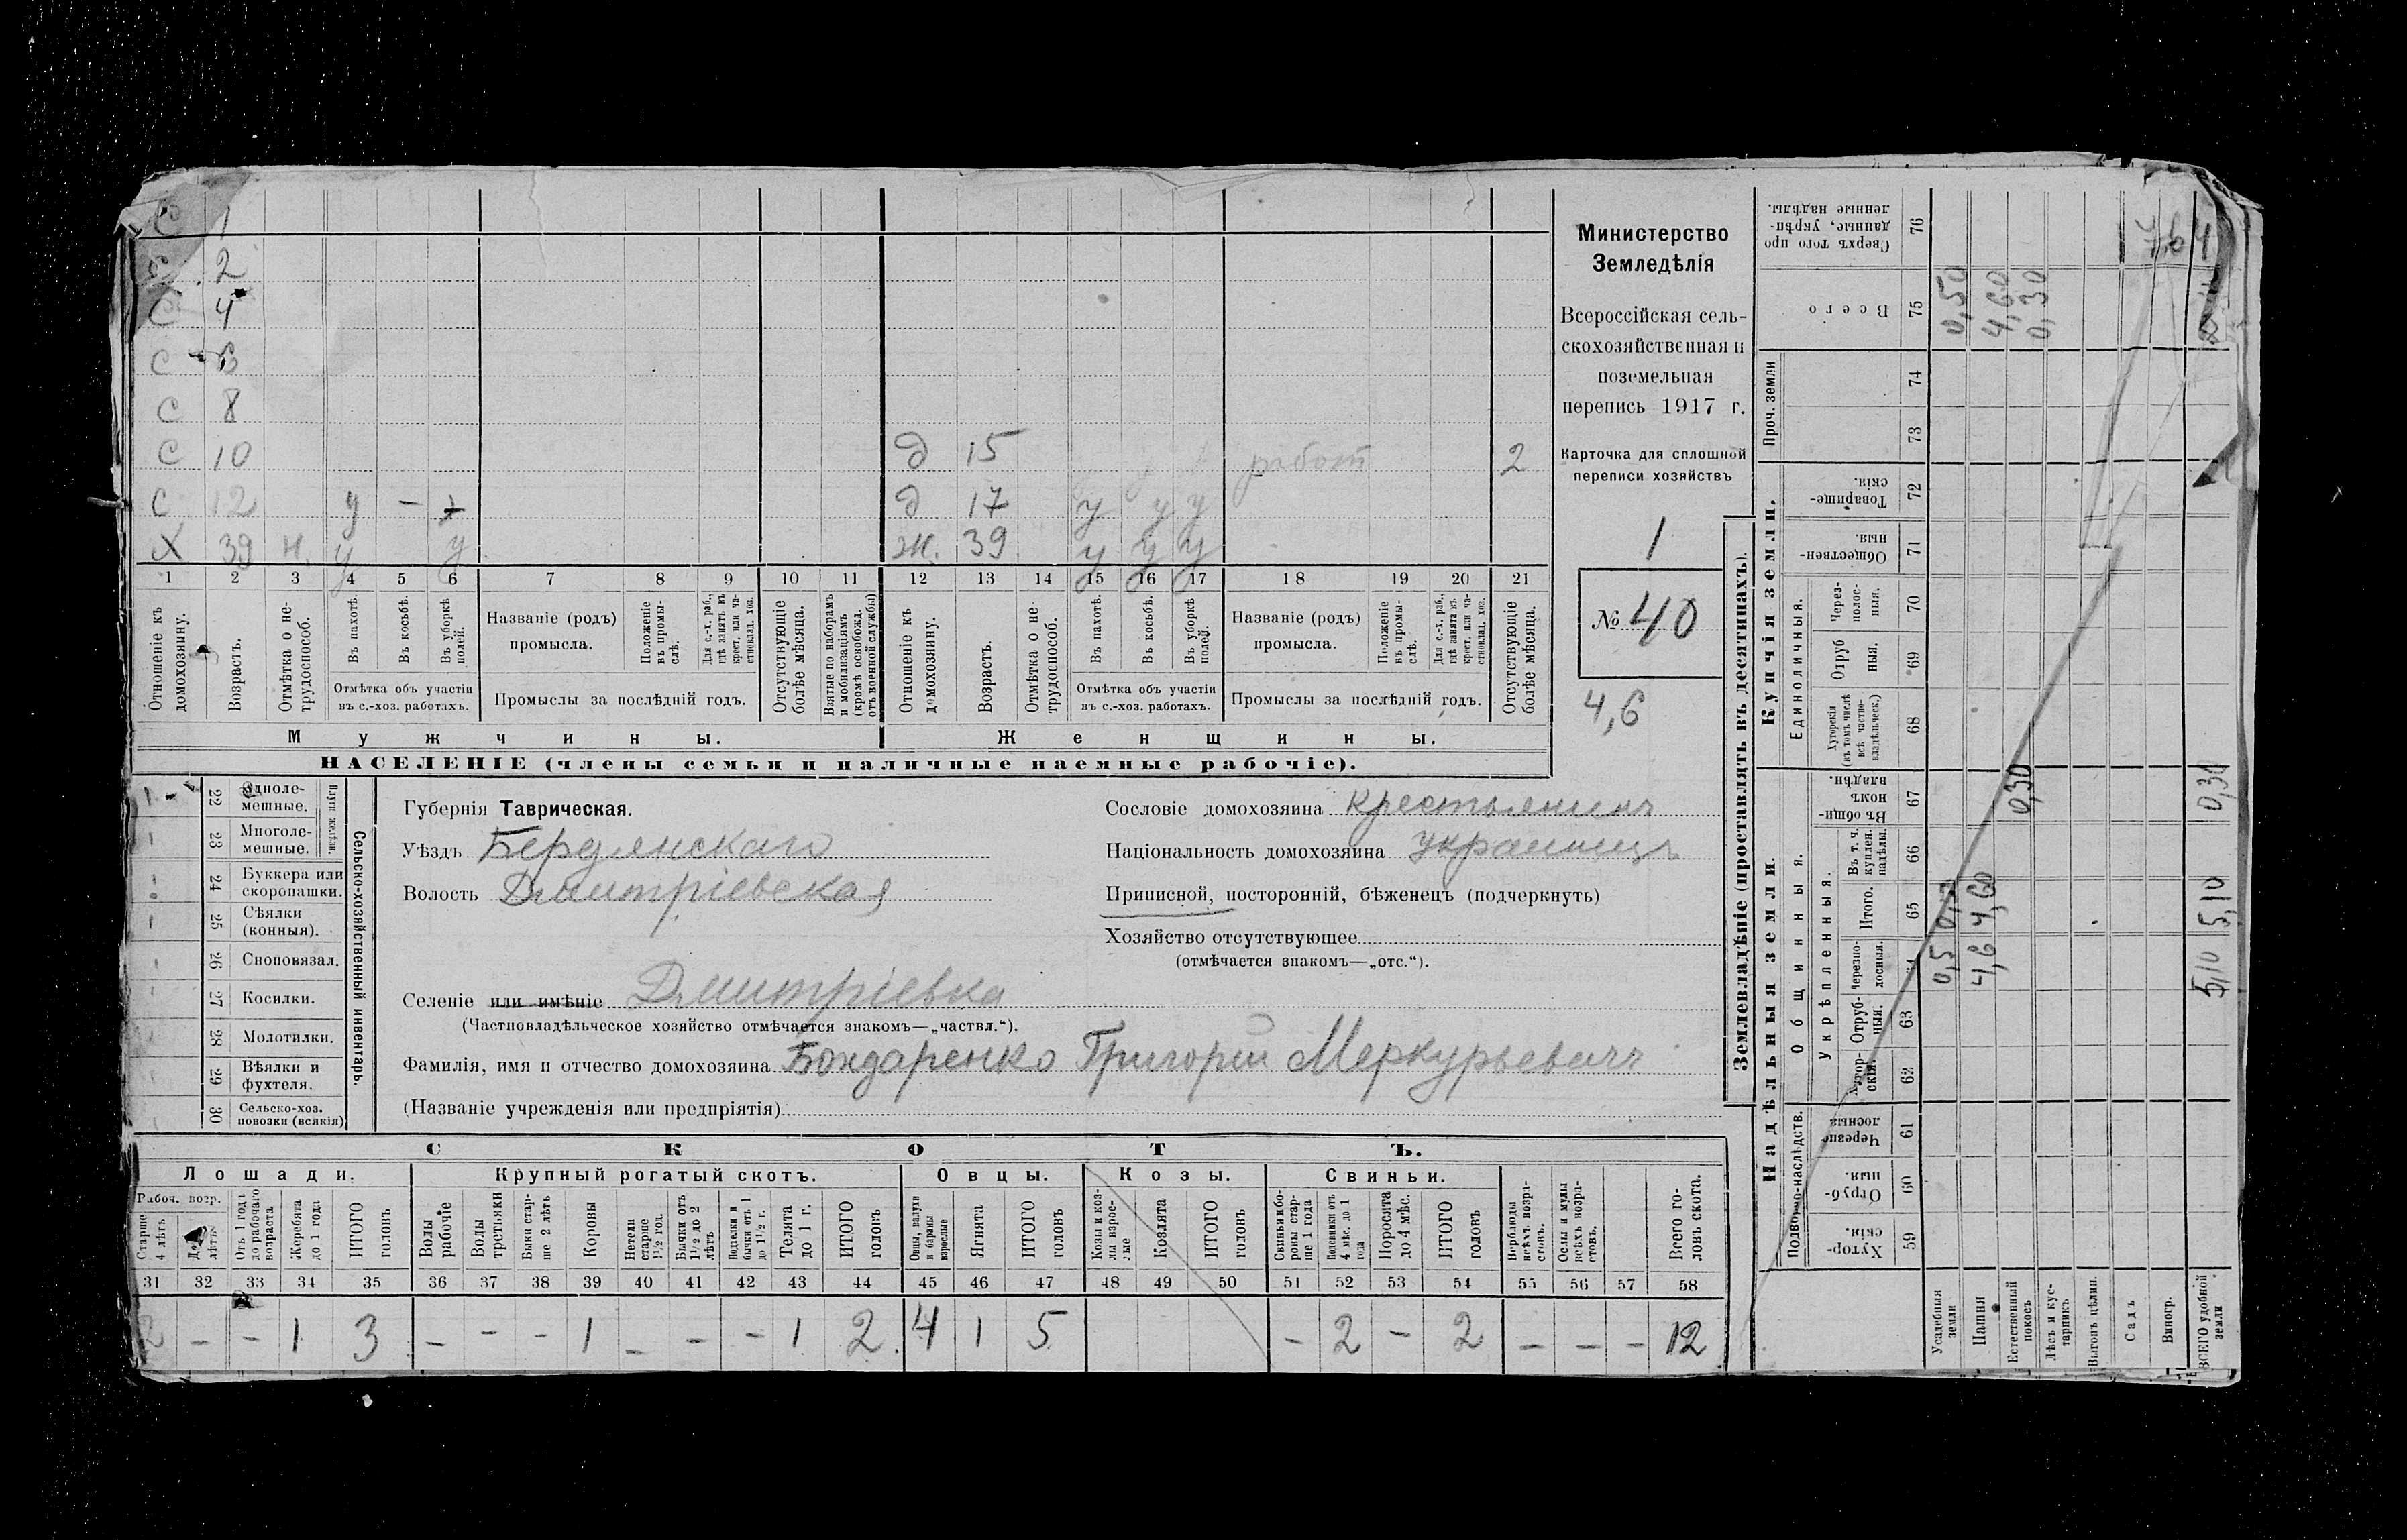 С 1
С 2
С 4
С 6
С 8
С 10 д 15 работ 2
С 12 у — + д 17 у у у
Х 39 н. у у ж. 39 у у у
1 2 3 4 5 6 7 8 9 10 11 12 13 14 15 16 17 18 19 20 21
Отношеніе къ домохозяину.
Возрастъ.
Отмѣтка о не-трудоспособ.
Въ пахотѣ.
Въ косьбѣ.
Въ уборкѣ полей.
Отмѣтка объ участіи въ с.-хоз. работахъ.
Названіе (родъ) промысла.
Положеніе въ промы-слѣ.
Для с.-х. раб., гдѣ занятъ въ крест. или ча-стновлад. хоз.
Промыслы за послѣдній годъ.
Отсутствующіе болѣе мѣсяца.
Взятые по наборамъ и мобилизаціямъ (кромѣ освобожд. отъ военной службы)
Отношеніе къ домохозяину.
Возрастъ.
Отмѣтка о не-трудоспособ.
Въ пахотѣ.
Въ косьбѣ.
Въ уборкѣ полей.
Отмѣтка объ участіи въ с.-хоз. работахъ.
Названіе (родъ) промысла.
Положеніе въ промы-слѣ.
Для с.-х. раб., гдѣ занята въ крест. или ча-стновлад. хоз.
Промыслы за послѣдній годъ.
Отсутствующіе болѣе мѣсяца.
Мужчины. Женщины.
НАСЕЛЕНІЕ (члены семьи и наличные наемные рабочіе).
Министерство
Земледѣлія
Всероссійская сель-
скохозяйственная и
поземельная
перепись 1917 г.
Карточка для сплошной
переписи хозяйствъ
1
№ 40
4,6
22 Одноле-мешные.
23 Многоле-мешные.
Плуги желѣзн.
24 Буккера или скоропашки.
25 Сѣялки (конныя).
26 Сноповязал.
27 Косилки.
28 Молотилки.
29 Вѣялки и фухтеля.
30 Сельско-хоз. повозки (всякія)
Сельско-хозяйственный инвентарь.
Губернія Таврическая.
Уѣздъ Бердянскаго
Волость Дмитріевская
Селеніе или имѣніе Дмитріевка
(Частновладѣльческое хозяйство отмѣчается знакомъ—„частвл.“).
Фамилія, имя и отчество домохозяина Бондаренко Григорий Меркурьевичъ
(Названіе учрежденія или предпріятія)
Сословіе домохозяина крестьянинъ
Національность домохозяина украинецъ
Приписной, посторонній, бѣженецъ (подчеркнуть)
Хозяйство отсутствующее
(отмѣчается знакомъ—„отс.“).
СКОТЪ.
Лошади. Крупный рогатый скотъ. Овцы. Козы. Свиньи.
Рабоч. возр.
Старше 4 лѣтъ
Отъ 1 года до рабочаго возраста
Жеребята до 1 года
ИТОГО головъ
Волы рабочіе
Волы третьяки
Быки стар-ше 2 лѣтъ
Коровы
Нетели старше 1½ год.
Бычки отъ 1½ до 2 лѣтъ
Подтелки и бычки отъ 1 до 1½ г.
Телята до 1 г.
ИТОГО головъ
Овцы, валухи и бараны взрослые
Ягнята
ИТОГО головъ
Козы и коз-лы взрос-лые
Козлята
ИТОГО головъ
Свиньи и бо-ровы стар-ше 1 года
Подсвинки отъ 4 мѣс. до 1 года
Поросята до 4 мѣс.
ИТОГО головъ
Верблюды всѣхъ возра-стовъ.
Ослы и мулы всѣхъ возра-стовъ.
Всего го-ловъ скота.
31 32 33 34 35 36 37 38 39 40 41 42 43 44 45 46 47 48 49 50 51 52 53 54 55 56 57 58
2 — — 1 3 — — — 1 — — — 1 2 4 1 5 — 2 — 2 — — — 12
Землевладѣніе (проставлять въ десятинахъ).
Купчія земли.
Надѣльныя земли.
Сверхъ того про-данные, укрѣп-ленные надѣлы. 76
Всего 75 0,50 4,60 0,30
Проч. земли 74 73
Товарище-скія. 72
Обществен-ныя. 71
Единоличныя.
Через-полос-ныя. 70
Отруб-ныя. 69
Хуторскія (въ томъ числѣ всѣ частно-владѣльческ.) 68
Общинныя.
Въ общин-номъ владѣн. 67 0,30 0,30
Укрѣпленныя.
Въ т. ч. куплен. надѣлы. 66
Итого. 65 4,60 5,10
Черезпо-лосныя. 0,5 4,6 5,10
Отруб-ныя. 63
Хутор-скія. 62
Подворно-наслѣдств.
Черезпо-лосныя 61
Отруб-ныя. 60
Хутор-скія. 59
Усадебныя земли
Пашня
Естественный покосъ
Лѣсъ и кус-тарникъ
Выгонъ цѣлин.
Садъ
Виногр.
ВСЕГО удобной земли